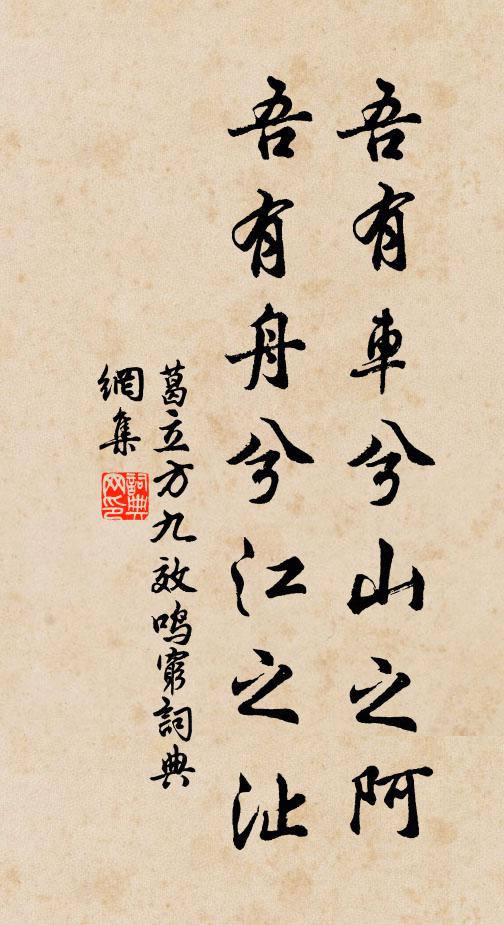 吾有車兮山之阿
吾有舟兮江之沚
葛立方九效鳴窮詞典
網集
詞典
网印